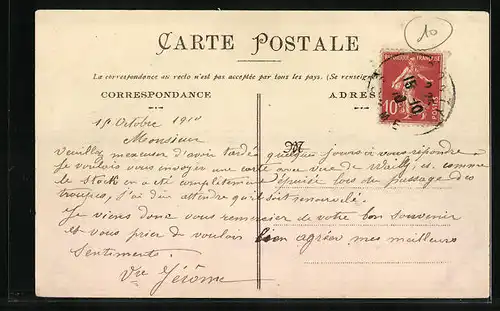 10
CARTE POSTALE
La correspondance au recto n'est pas acceptée par tous les pays. (Se renseigner
CORRESPONDANCE
ADRES
REPUBLIQUE FRANÇAISE
10c
POSTES
15-10
15 Octobre 1910
Monsieur
M
Veuillez m'excuser d'avoir tardé quelques jours à vous répondre
Je voulais vous envoyer une carte avec vue de Wailly et comme
le stock en a été complètement épuisé lors du passage des
troupes, j'ai dû attendre qu'il soit renouvelé.
Je viens donc vous remercier de votre bon souvenir
et vous prier de vouloir bien agréer mes meilleurs
Sentiments.
Vve Jérôme